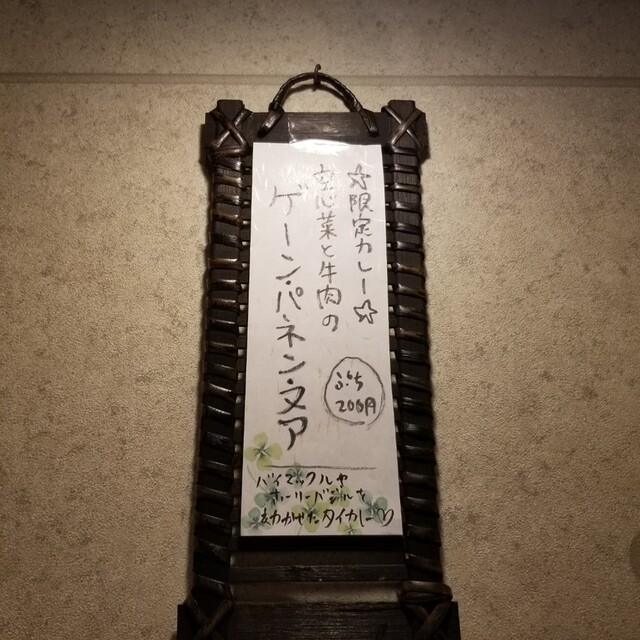 ☆限定カレー☆
空心菜と牛肉の
ゲーン・パ・ネン・ヌア
ぷち
200円
バイマックルや
ホーリーバジルを
きかせたタイカレー♡